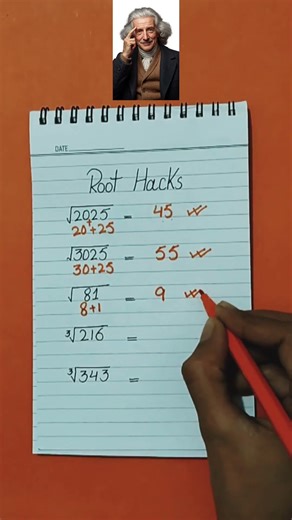 DATE
Root Hacks
√2025 = 45
20+25
√3025 = 55
30+25
√81 = 9
8+1
³√216 =
³√343 =